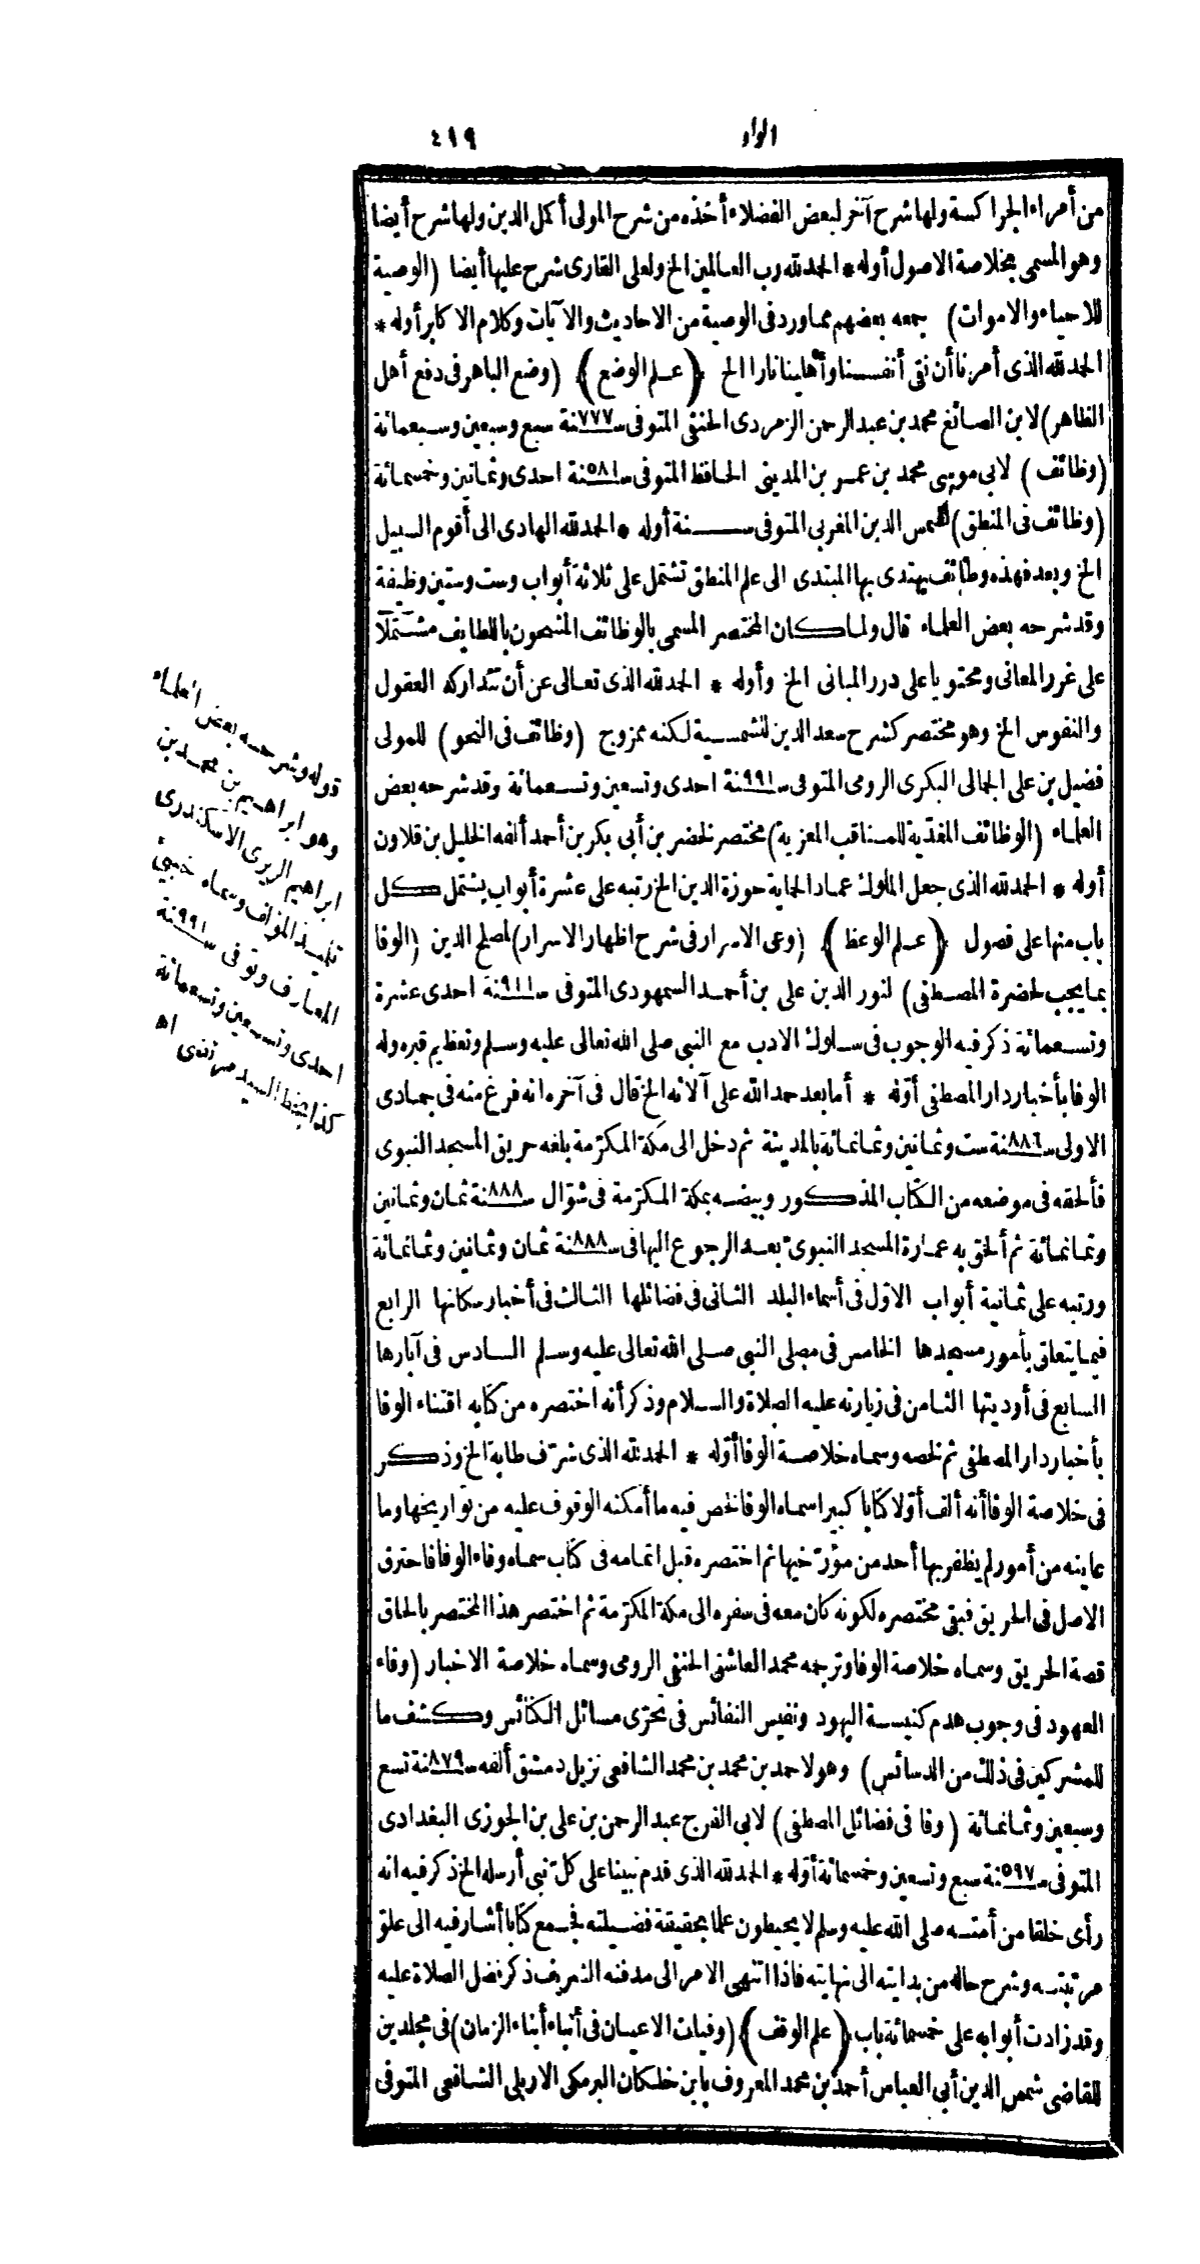 الواو
٤١٩
من أمراء الجراكسة ولها شرح آخر لبعض الفضلاء أخذه من شرح المولى أكمل الدين ولها شرح أيضا
وهو المسمى بخلاصة الاصول أوله * الحمد لله رب العالمين الخ ولعلى القارى شرح عليها أيضا (الوصية
للاحياء والاموات) جمعه بعضهم مما ورد فى الوصية من الاحاديث والآيات وكلام الاكابر أوله *
الحمد لله الذى أمرنا أن نقى أنفسنا وأهلينا نارا الخ (علم الوضع) (وضع الباهر فى دفع أهل
الظاهر) لابن الصائغ محمد بن عبد الرحمن الزمردى الحنفى المتوفى سنة ٧٧٧ سبع وسبعين وسبعمائة
(وظائف) لابى موسى محمد بن عمر بن المدينى الحافظ المتوفى سنة ٥٨١ احدى وثمانين وخمسمائة
(وظائف فى المنطق) لشمس الدين المغربى المتوفى سنة أوله * الحمد لله الهادى الى أقوم السبيل
الخ وبعد فهذه وظائف يهتدى بها المبتدى الى علم المنطق تشتمل على ثلاثة أبواب وست وستين وظيفة
وقد شرحه بعض العلماء قال ولما كان المختصر المسمى بالوظائف المشحون باللطايف مشتملا
على غرر المعانى ومحتويا على درر المبانى الخ وأوله * الحمد لله الذى تعالى عن أن تتداركه العقول
والنفوس الخ وهو مختصر كشرح سعد الدين للشمسية لكنه ممزوج (وظائف فى النحو) للمولى
فضيل بن على الجمالى البكرى الرومى المتوفى سنة ٩٩١ احدى وتسعين وتسعمائة وقد شرحه بعض
العلماء (الوظائف المغذية للمناقب المعزية) مختصر لخضر بن أبى بكر بن أحمد ألفه الخليل بن قلاون
أوله * الحمد لله الذى جعل الملوك عماد الحماية حوزة الدين الخ رتبه على عشرة أبواب يشتمل كل
باب منها على فصول (علم الوعظ) (وعى الاسرار فى شرح اظهار الاسرار) لمصلح الدين (الوفا
بما يجب لحضرة المصطفى) لنور الدين على بن أحمد السمهودى المتوفى سنة ٩١١ احدى عشرة
وتسعمائة ذكر فيه الوجوب فى سلوك الادب مع النبى صلى الله تعالى عليه وسلم وتعظيم قبره وله
الوفا بأخبار دار المصطفى أوّله * أما بعد حمد الله على آلائه الخ قال فى آخره انه فرغ منه فى جمادى
الاولى سنة ٨٨٦ ست وثمانين وثمانمائة بالمدينة ثم دخل الى مكة المكرّمة بلغه حريق المسجد النبوى
فألحقه فى موضعه من الكتاب المذكور وبيضه بمكة المكرّمة فى شوّال سنة ٨٨٨ ثمان وثمانين
وثمانمائة ثم ألحق به عمارة المسجد النبوى بعد الرجوع اليها فى سنة ٨٨٨ ثمان وثمانين وثمانمائة
ورتبه على ثمانية أبواب الاوّل فى أسماء البلد الثانى فى فضائلها الثالث فى أخبار سكانها الرابع
فيما يتعلق بأمور مسجدها الخامس فى مصلى النبى صلى الله تعالى عليه وسلم السادس فى آبارها
السابع فى أوديتها الثامن فى زيارته عليه الصلاة والسلام وذكر أنه اختصره من كتابه اقتناء الوفا
بأخبار دار المصطفى ثم لخصه وسماه خلاصة الوفا أوّله * الحمد لله الذى شرّف طابة الخ وذكر
فى خلاصة الوفا أنه ألف أوّلا كتابا كبيرا سماه الوفا لخص فيه ما أمكنه الوقوف عليه من تواريخها وما
عاينه من أمور لم يظفر بها أحد من مؤرّخيها ثم اختصره قبل اتمامه فى كتاب سماه وفاء الوفا فاحترق
الاصل فى الحريق فبقى مختصره لكونه كان معه فى سفره الى مكة المكرّمة ثم اختصر هذا المختصر بالحاق
قصة الحريق وسماه خلاصة الوفا وترجمه محمد العاشق الحنفى الرومى وسماه خلاصة الاخبار (وفاء
العهود فى وجوب هدم كنيسة اليهود ونفيس النفائس فى تحرّى مسائل الكنائس وكشف ما
للمشركين فى ذلك من الدسائس) وهو لاحمد بن محمد بن محمد الشافعى نزيل دمشق ألفه سنة ٨٧٩ تسع
وسبعين وثمانمائة (وفا فى فضائل المصطفى) لابى الفرج عبد الرحمن بن على بن الجوزى البغدادى
المتوفى سنة ٥٩٧ سبع وتسعين وخمسمائة أوّله * الحمد لله الذى قدم نبينا على كلّ نبى أرسله الخ ذكر فيه انه
رأى خلقا من أمته صلى الله عليه وسلم لا يحيطون علما بحقيقة فضيلته فجمع كتابا أشار فيه الى علوّ
مرتبته وشرح حاله من بدايته الى نهايته فاذا انتهى الامر الى مدفنه الشريف ذكر فضل الصلاة عليه
وقد زادت أبوابه على خمسمائة باب (علم الوقف) (وفيات الاعيان فى أنباء أبناء الزمان) فى مجلدين
للقاضى شمس الدين أبى العباس أحمد بن محمد المعروف بابن خلكان البرمكى الاربلى الشافعى المتوفى
قوله وشرحه بعض العلماء
وهو ابراهيم بن محمد بن
ابراهيم الاسكندرى
تلميذ المؤلف وسماه
المعارف وتوفى سنة ٩٩١
احدى وتسعين وتسعمائة
كذا بخط السيد مرتضى اه